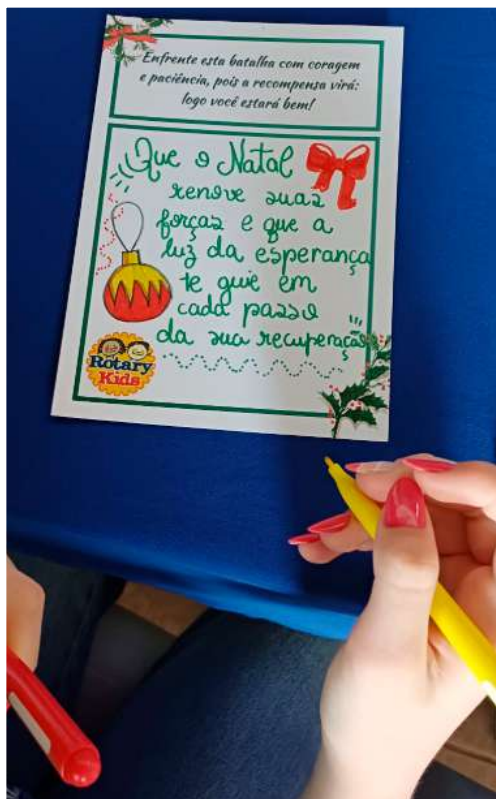 Enfrente esta batalha com coragem
e paciência, pois a recompensa virá:
logo você estará bem!
Que o Natal
renove suas
forças e que a
luz da esperança
te guie em
cada passo
da sua recuperação
Rotary
Kids